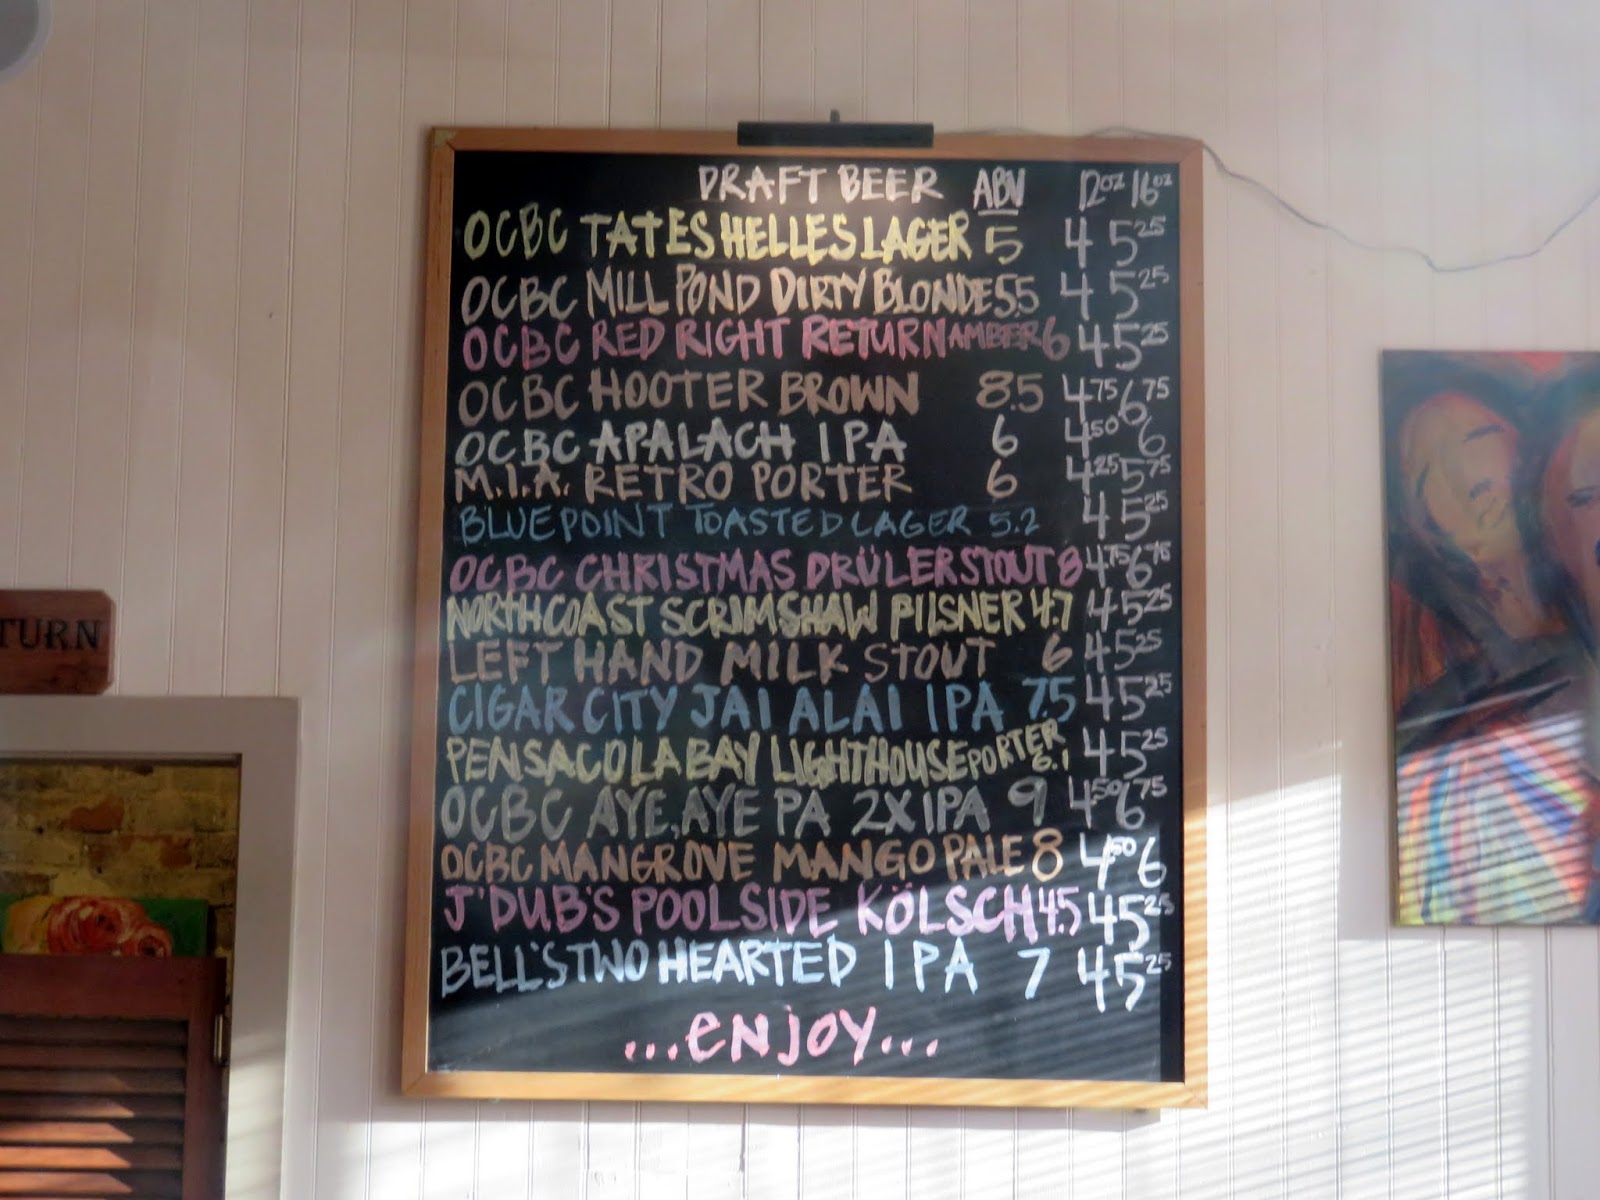 DRAFT BEER ABV 12oz 16oz
OCBC TATES HELLES LAGER 5 4 5 25
OCBC MILL POND DIRTY BLONDE 5.5 4 5 25
OCBC RED RIGHT RETURN AMBER 6 4 5 25
OCBC HOOTER BROWN 8.5 4 75 6 75
OCBC APALACH IPA 6 4 50 6
M.I.A. RETRO PORTER 6 4 25 5 75
BLUEPOINT TOASTED LAGER 5.2 4 5 25
OCBC CHRISTMAS DRÜLER STOUT 8 4 75 6 75
NORTHCOAST SCRIMSHAW PILSNER 4.7 4 5 25
LEFT HAND MILK STOUT 6 4 5 25
CIGAR CITY JAI ALAI IPA 7.5 4 5 25
PENSACOLA BAY LIGHTHOUSE PORTER 6.1 4 5 25
OCBC AYE, AYE PA 2X IPA 9 4 50 6 75
OCBC MANGROVE MANGO PALE 8 4 50 6
J'DUB'S POOLSIDE KÖLSCH 4.5 4 5 25
BELL'S TWO HEARTED IPA 7 4 5 25
...ENJOY...
TURN